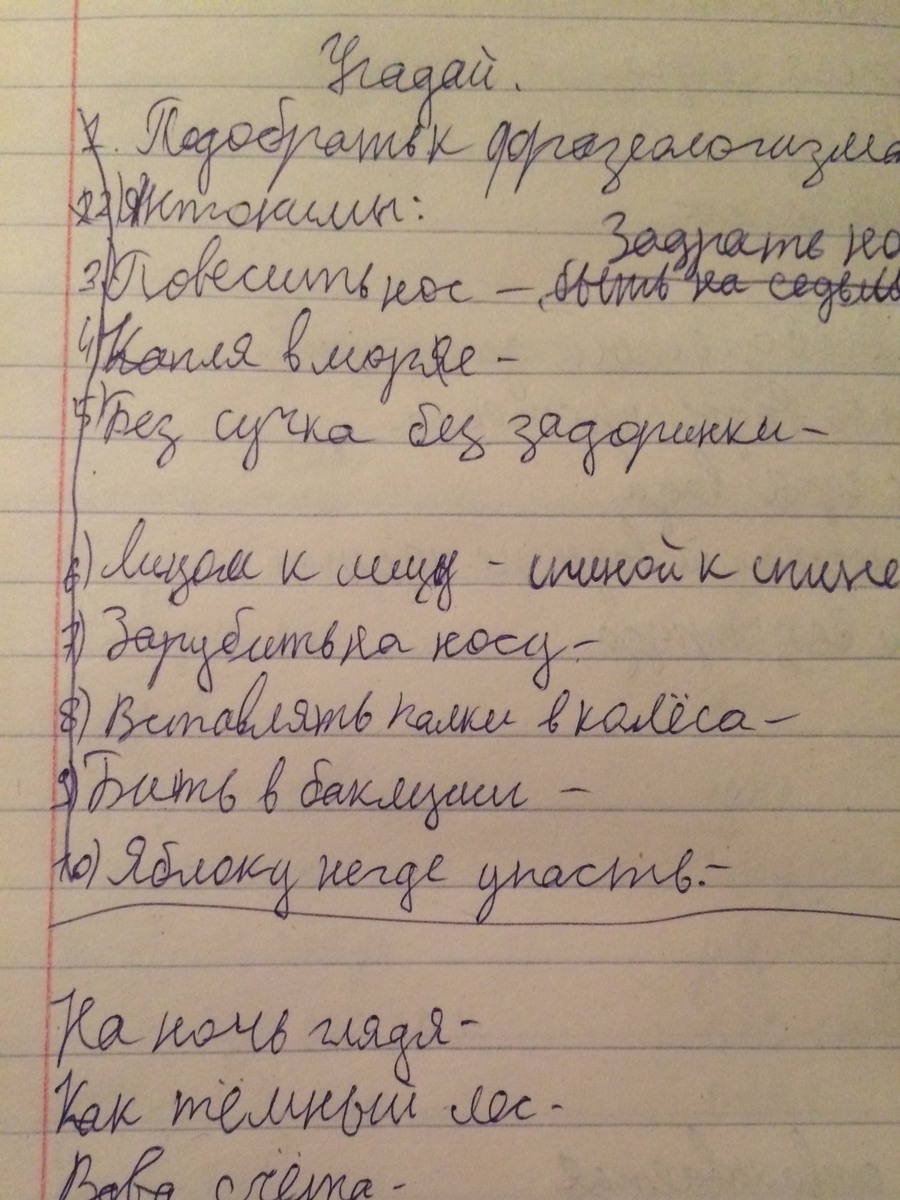 Угадай.
1. Подобрать к фразеологизма
2) Антонимы:
Задрать но
3) Повесить нос – быть на седьм
4) Капля в море –
5) Без сучка без задоринки –
6) Лицом к лицу - спиной к спине
7) Зарубить на носу –
8) Вставлять палки в колёса –
9) Бить в баклуши –
10) Яблоку негде упасть. –
На ночь глядя –
Как тёмный лес -
счёта -